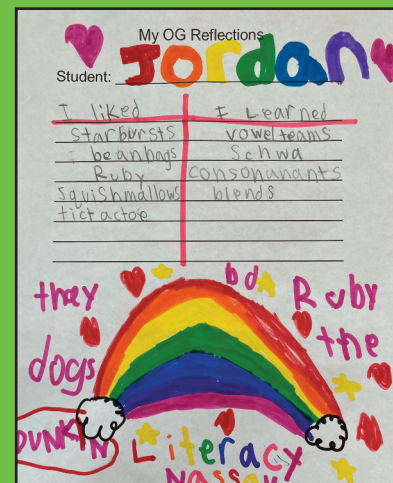 My OG Reflections
Student: Jordan
I liked
I Learned
starbursts
vowel teams
beanbags
Schwa
Ruby
consonanants
squishmallows
blends
tictactoe
they
bd
Ruby
the
dogs
DUNKIN
Literacy
Nassau